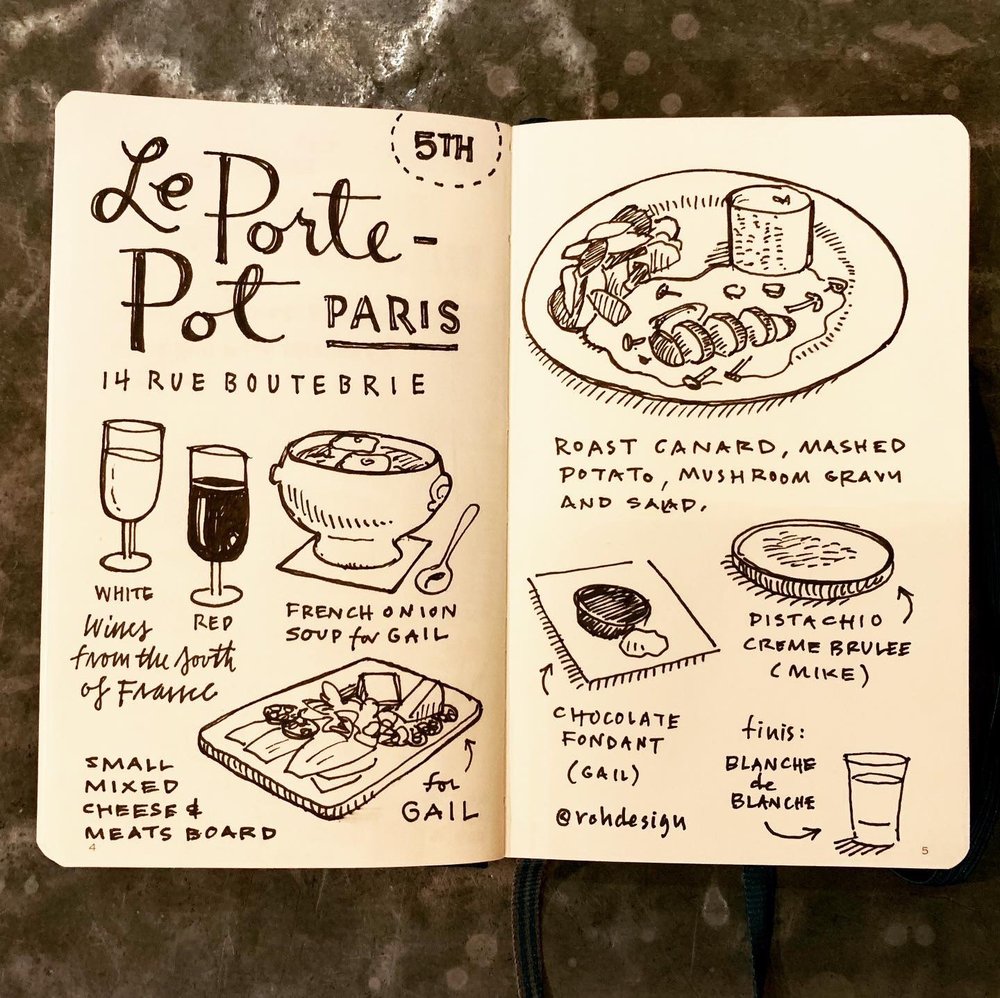 5TH
Le Porte-
Pot PARIS
14 RUE BOUTEBRIE
WHITE
RED
Wines
from the South
of France
FRENCH ONION
SOUP for GAIL
SMALL
MIXED
CHEESE &
MEATS BOARD
for
GAIL
4
ROAST CANARD, MASHED
POTATO, MUSHROOM GRAVY
AND SALAD.
CHOCOLATE
FONDANT
(GAIL)
@rohdesign
PISTACHIO
CREME BRULEE
(MIKE)
finis:
BLANCHE
de
BLANCHE
5